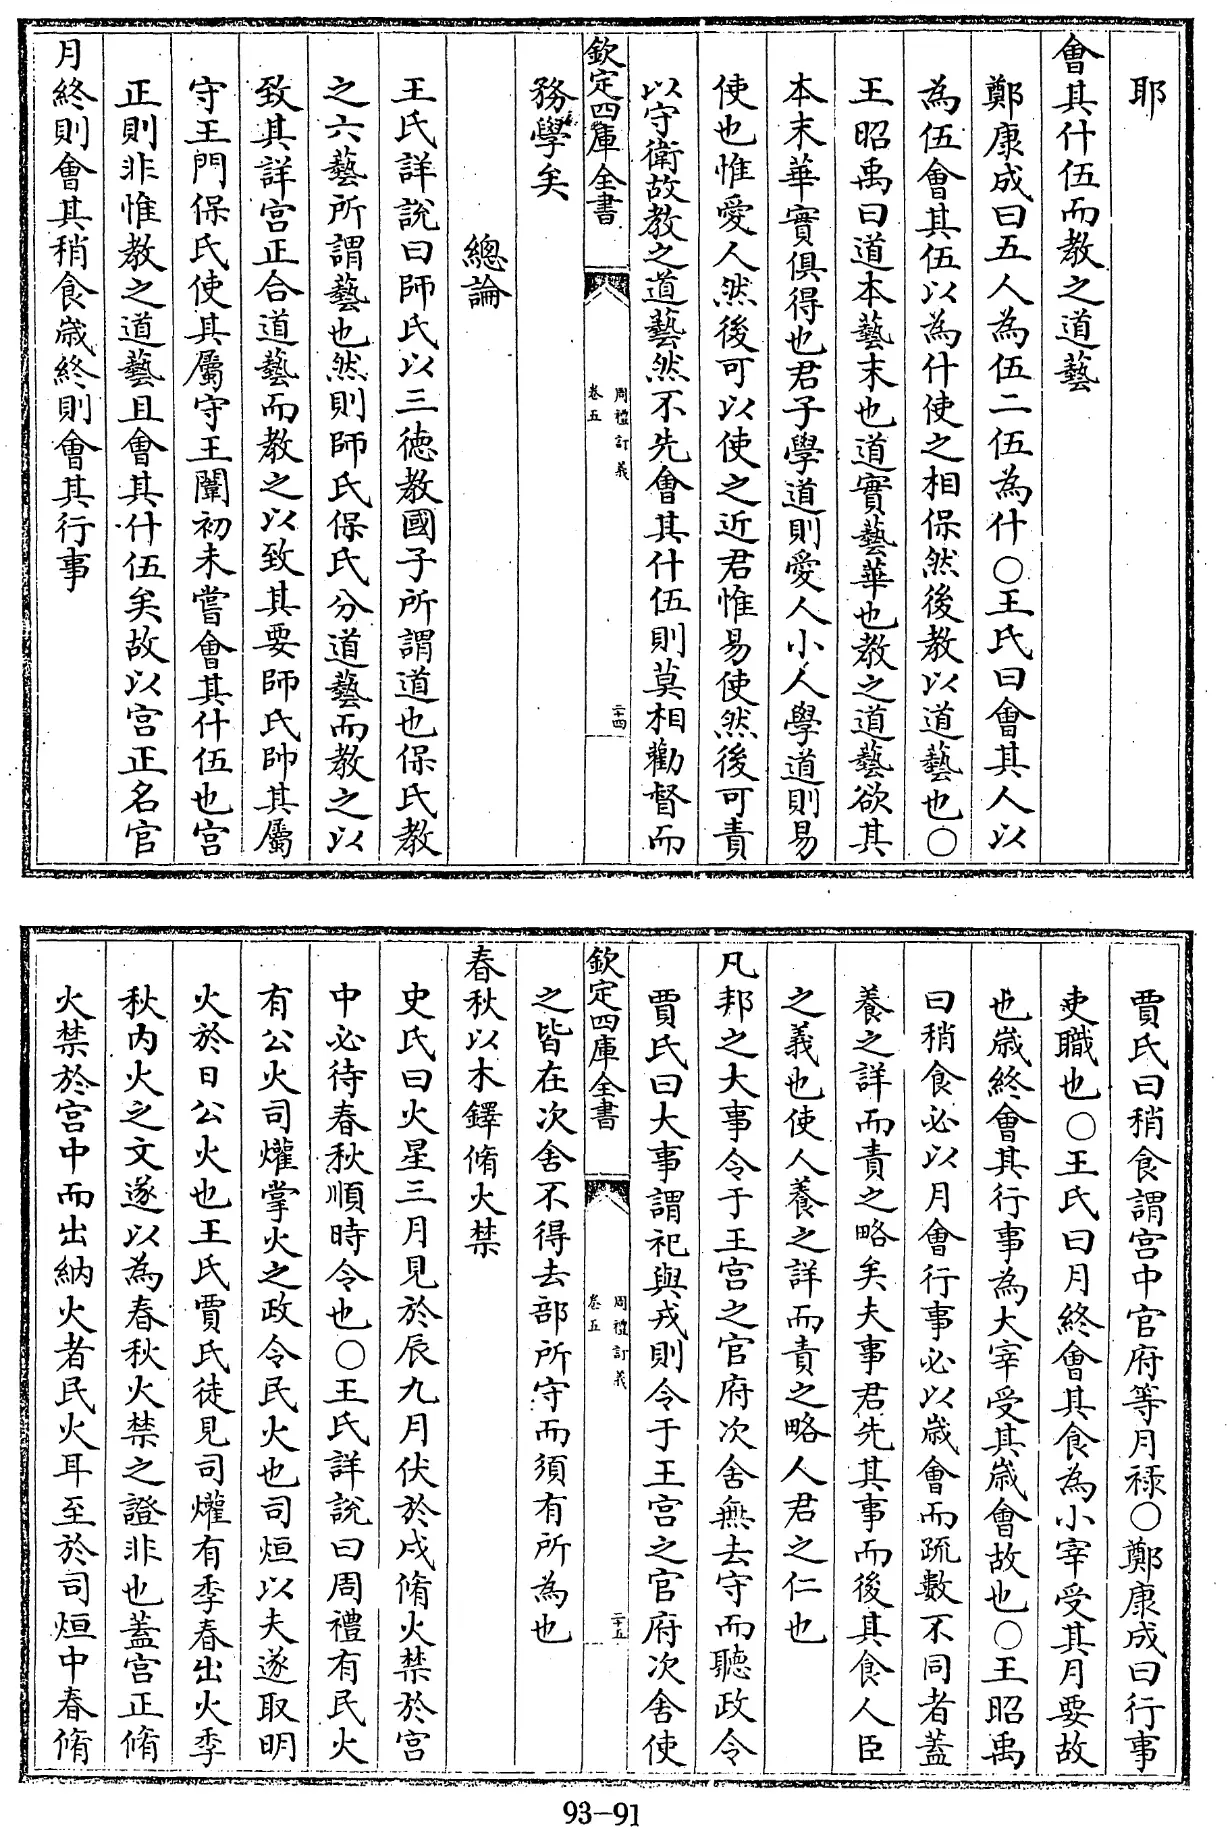 耶
會其什伍而教之道藝
鄭康成曰五人為伍二伍為什○王氏曰會其人以
為伍會其伍以為什使之相保然後教以道藝也○
王昭禹曰道本藝末也道實藝華也教之道藝欲其
本末華實俱得也君子學道則愛人小人學道則易
使也惟愛人然後可以使之近君惟易使然後可責
以守衛故教之道藝然不先會其什伍則莫相勸督而
欽定四庫全書
周禮訂義
卷五
二十四
務學矣
總論
王氏詳說曰師氏以三德教國子所謂道也保氏教
之六藝所謂藝也然則師氏保氏分道藝而教之以
致其詳宫正合道藝而教之以致其要師氏帥其屬
守王門保氏使其屬守王闈初未嘗會其什伍也宫
正則非惟教之道藝且會其什伍矣故以宫正名官
月終則會其稍食歲終則會其行事
賈氏曰稍食謂宫中官府等月禄○鄭康成曰行事
吏職也○王氏曰月終會其食為小宰受其月要故
也歲終會其行事為大宰受其歲會故也○王昭禹
曰稍食必以月會行事必以歲會而疏數不同者蓋
養之詳而責之略矣夫事君先其事而後其食人臣
之義也使人養之詳而責之略人君之仁也
凡邦之大事令于王宫之官府次舍無去守而聽政令
賈氏曰大事謂祀與戎則令于王宫之官府次舍使
欽定四庫全書
周禮訂義
卷五
二十五
之皆在次舍不得去部所守而須有所為也
春秋以木鐸脩火禁
史氏曰火星三月見於辰九月伏於戌脩火禁於宫
中必待春秋順時令也○王氏詳說曰周禮有民火
有公火司爟掌火之政令民火也司烜以夫遂取明
火於日公火也王氏賈氏徒見司爟有季春出火季
秋内火之文遂以為春秋火禁之證非也蓋宫正脩
火禁於宫中而出納火者民火耳至於司烜中春脩
93-91